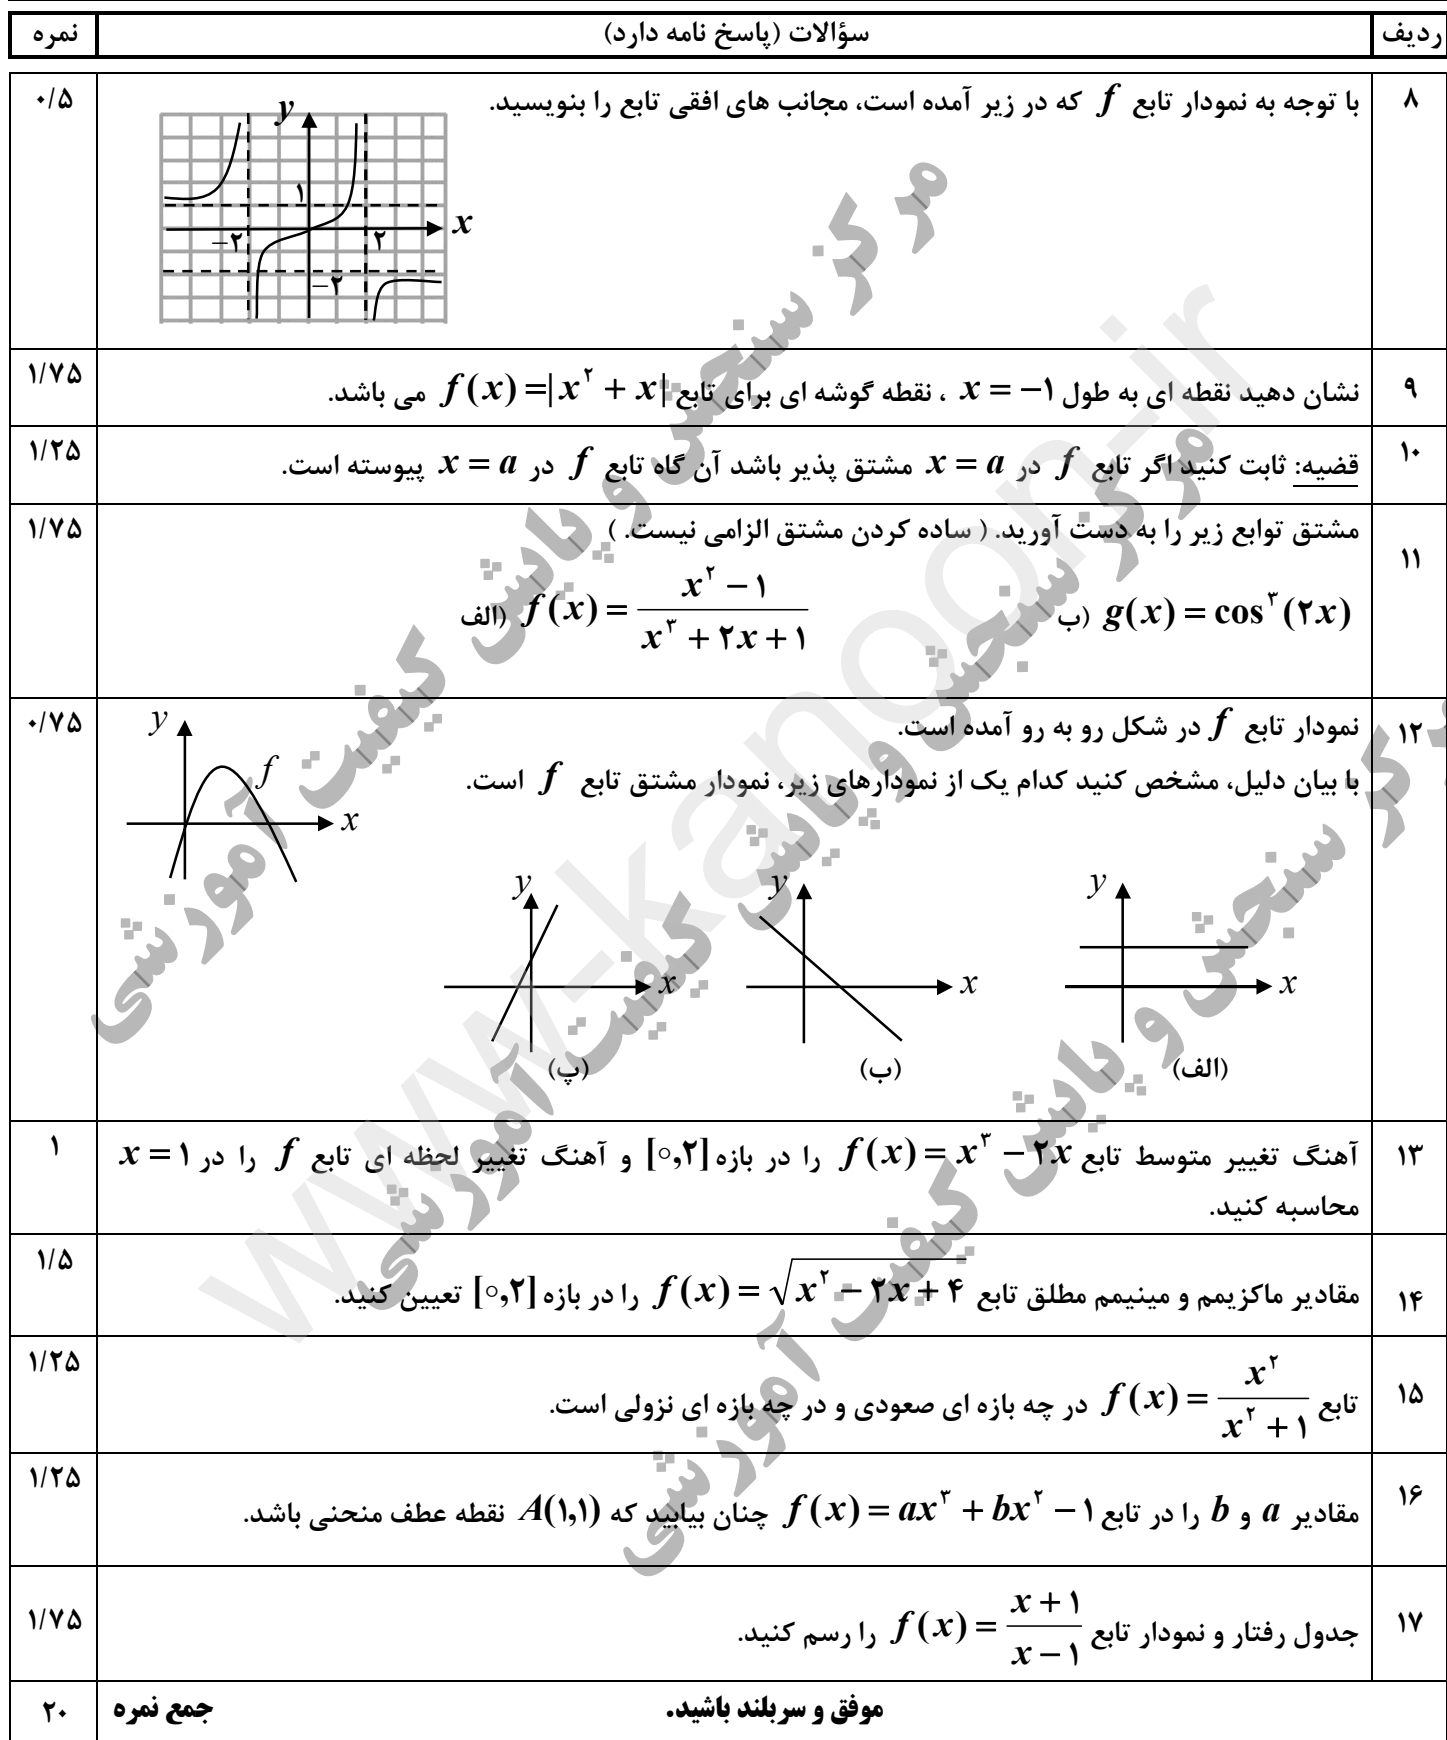 ردیف سؤالات (پاسخ نامه دارد) نمره
۸ با توجه به نمودار تابع f که در زیر آمده است، مجانب های افقی تابع را بنویسید. ۰/۵
y
۱
x
−۲ ۲
−۲
۹ نشان دهید نقطه ای به طول x = −۱ ، نقطه گوشه ای برای تابع f(x) =| x^۲ + x| می باشد. ۱/۷۵
۱۰ قضیه: ثابت کنید اگر تابع f در x = a مشتق پذیر باشد آن گاه تابع f در x = a پیوسته است. ۱/۲۵
۱۱ مشتق توابع زیر را به دست آورید. ( ساده کردن مشتق الزامی نیست. ) ۱/۷۵
الف) f(x) = (x^۲ − ۱)/(x^۳ + ۲x + ۱) ب) g(x) = cos^۳(۲x)
۱۲ نمودار تابع f در شکل رو به رو آمده است. ۰/۷۵
با بیان دلیل، مشخص کنید کدام یک از نمودارهای زیر، نمودار مشتق تابع f است.
y
f
x
y y y
x x x
(الف) (ب) (پ)
۱۳ آهنگ تغییر متوسط تابع f(x) = x^۳ − ۲x را در بازه [۰,۲] و آهنگ تغییر لحظه ای تابع f را در x = ۱ ۱
محاسبه کنید.
۱۴ مقادیر ماکزیمم و مینیمم مطلق تابع f(x) = √(x^۲ − ۲x + ۴) را در بازه [۰,۲] تعیین کنید. ۱/۵
۱۵ تابع f(x) = x^۲/(x^۲ + ۱) در چه بازه ای صعودی و در چه بازه ای نزولی است. ۱/۲۵
۱۶ مقادیر a و b را در تابع f(x) = ax^۳ + bx^۲ − ۱ چنان بیابید که A(۱,۱) نقطه عطف منحنی باشد. ۱/۲۵
۱۷ جدول رفتار و نمودار تابع f(x) = (x + ۱)/(x − ۱) را رسم کنید. ۱/۷۵
موفق و سربلند باشید. جمع نمره ۲۰
مرکز سنجش و پایش کیفیت آموزشی
مرکز سنجش و پایش کیفیت آموزشی
مرکز سنجش و پایش کیفیت آموزشی
www-kanoon-ir